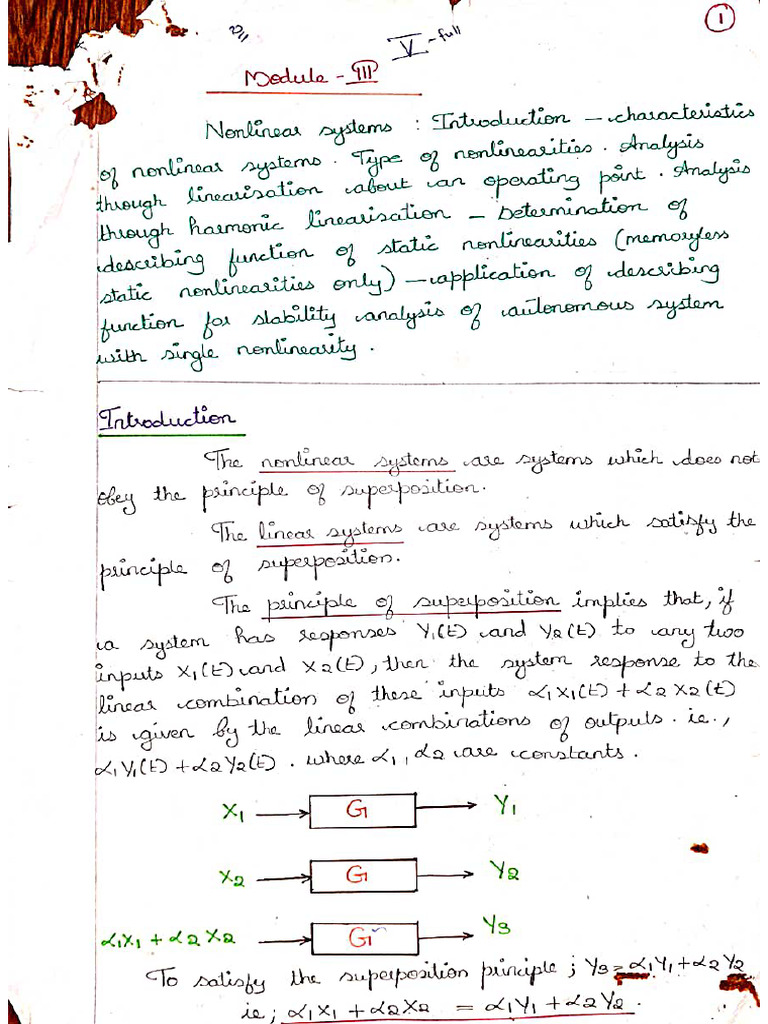 1
V - full
Module - III
Nonlinear systems : Introduction - characteristics
of nonlinear systems. Type of nonlinearities. Analysis
through linearisation about an operating point. Analysis
through harmonic linearisation - Determination of
describing function of static nonlinearities (memoryless
static nonlinearities only) - application of describing
function for stability analysis of autonomous system
with single nonlinearity.
Introduction
The nonlinear systems are systems which does not
obey the principle of superposition.
The linear systems are systems which satisfy the
principle of superposition.
The principle of superposition implies that, if
a system has responses Y1(t) and Y2(t) to any two
inputs X1(t) and X2(t), then the system response to the
linear combination of these inputs α1X1(t) + α2X2(t)
is given by the linear combinations of outputs. ie.,
α1Y1(t) + α2Y2(t). where α1, α2 are constants.
X1 → G → Y1
X2 → G → Y2
α1X1 + α2X2 → G → Y3
To satisfy the superposition principle ; Y3 = α1Y1 + α2Y2
ie; α1X1 + α2X2 = α1Y1 + α2Y2.